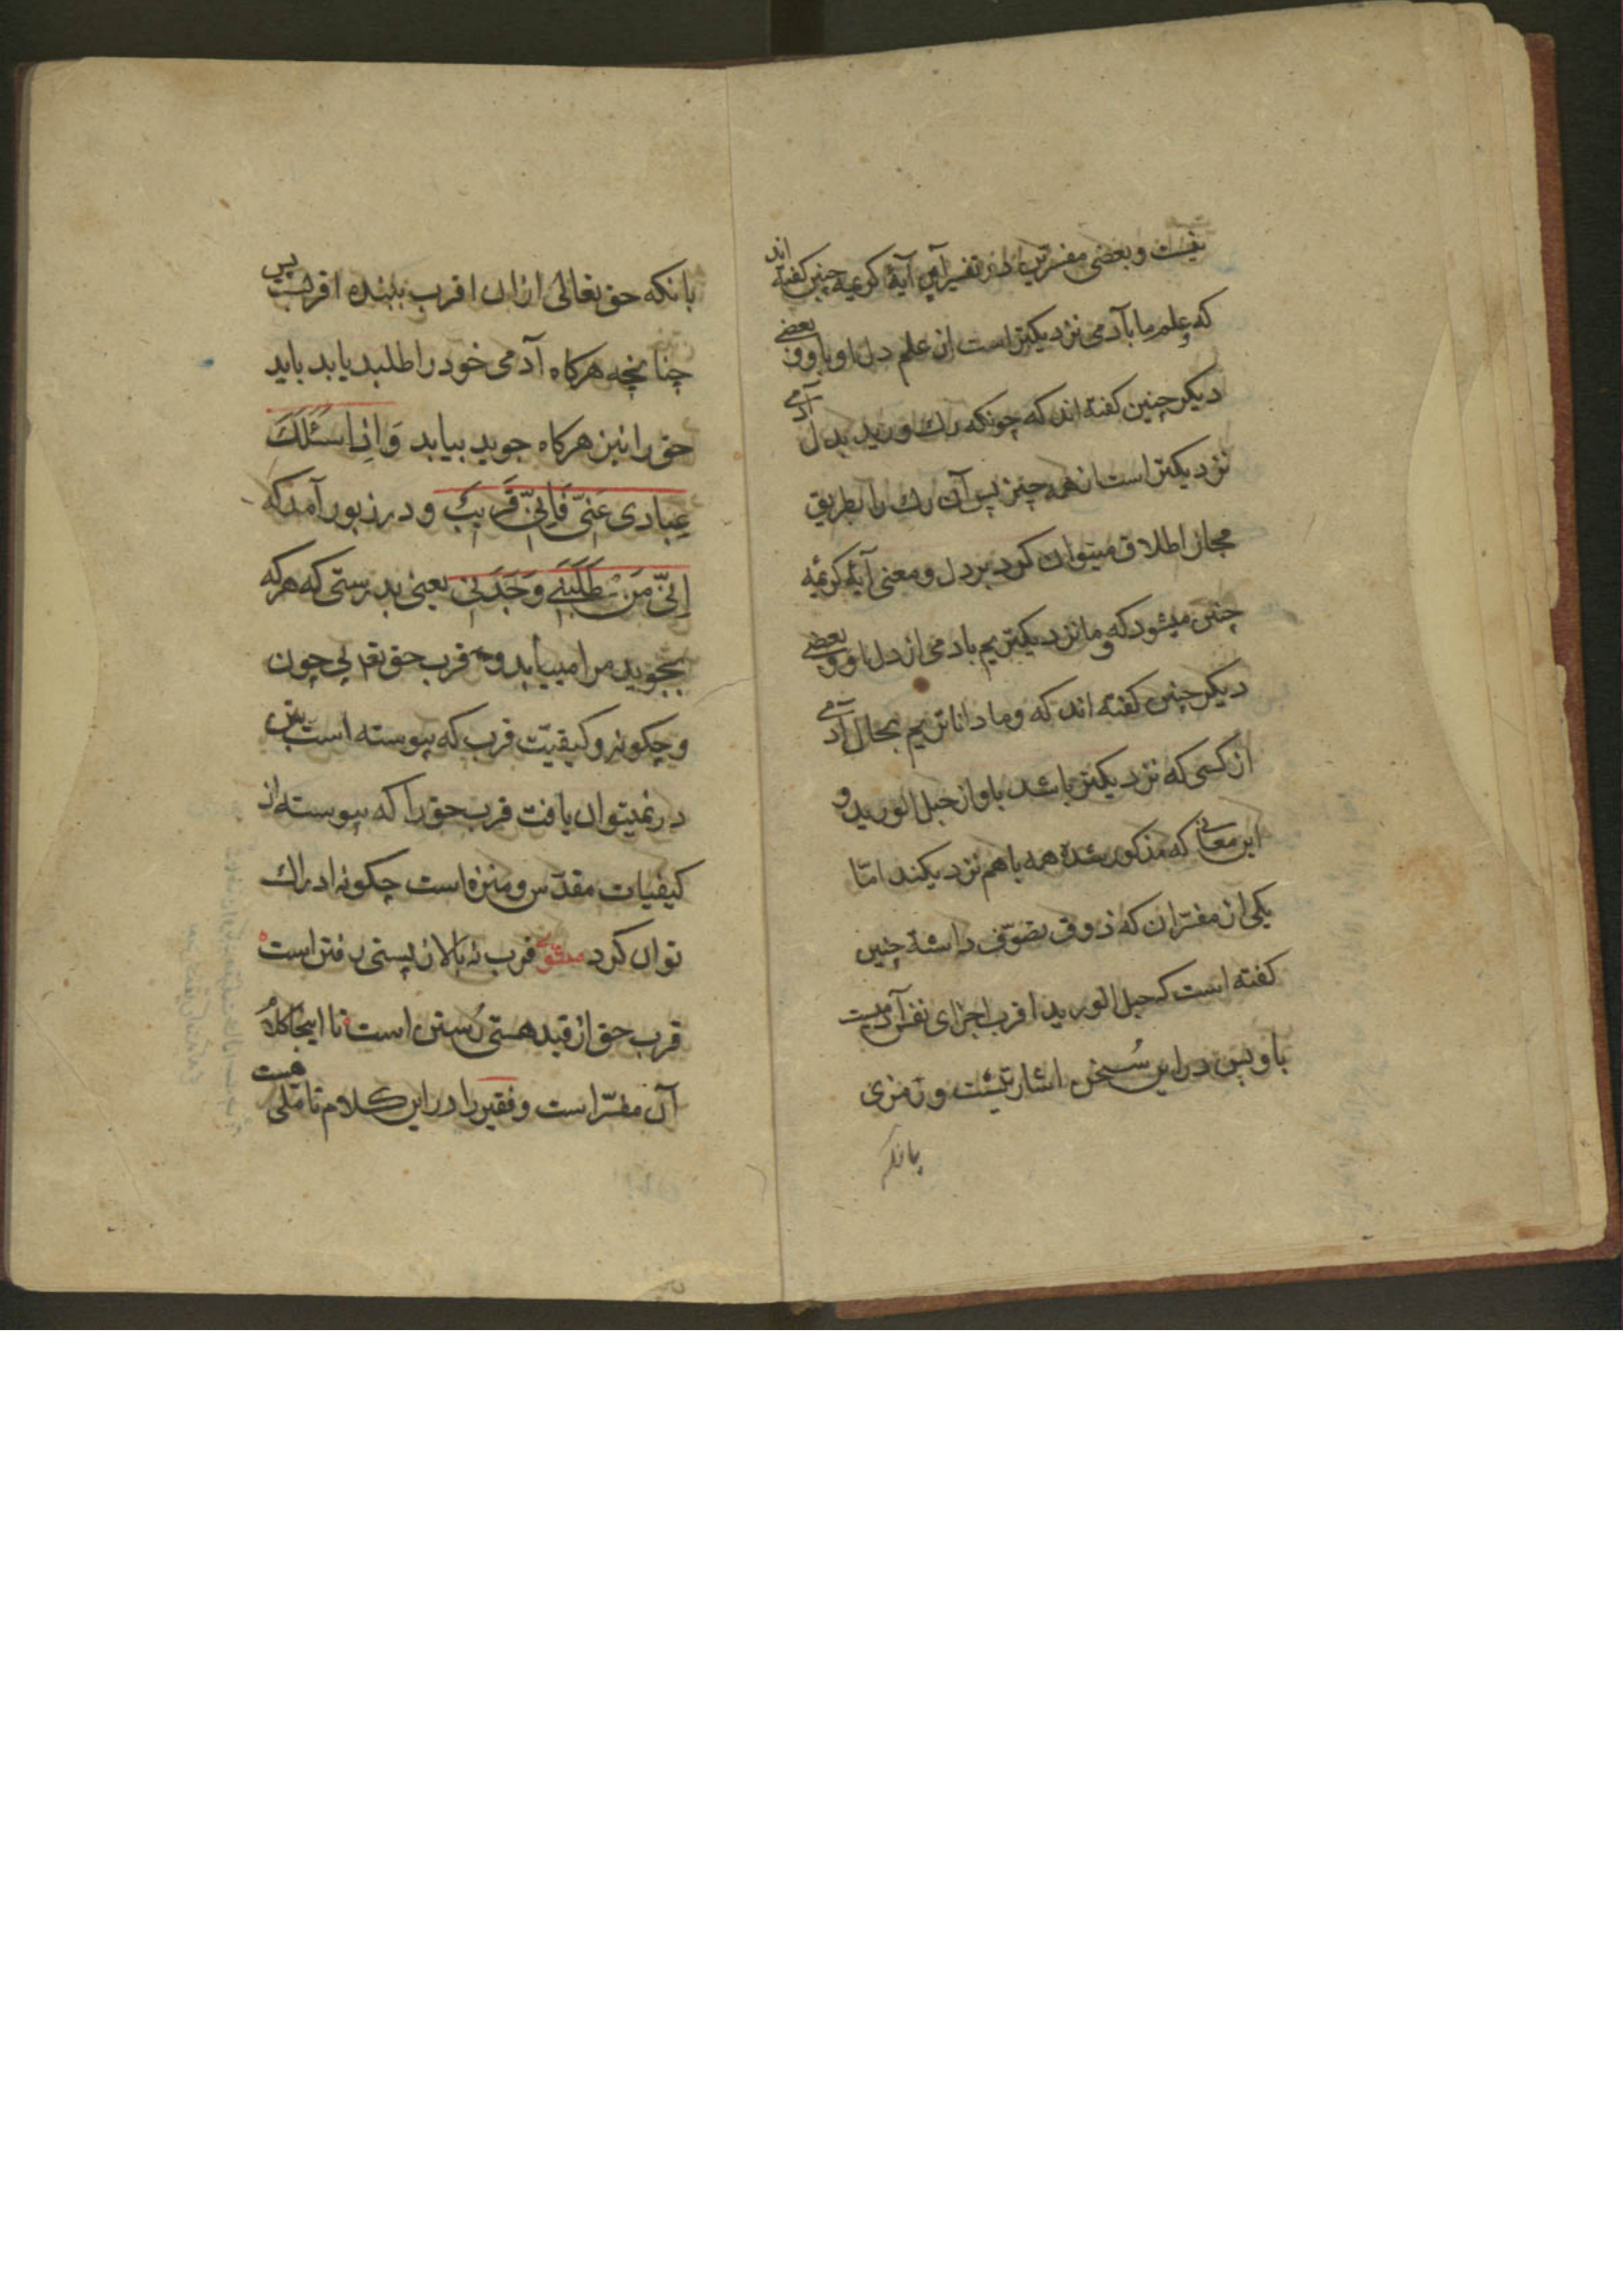 نیست و بعضی مفسرین در تفسیر این آیهٔ کریمه چنین گفته اند
که علم ما بآدمی نزدیکتر است از علم دل او باو و بعضی
دیکر چنین کفته اند که چونکه رك ورید بدل آدمی
نزدیکتر است از همه چیز پس آن رك را بطریق
مجاز اطلاق میتوان کرد بر دل و معنی آیهٔ کریمه
چنین میشود که و ما نزدیکتریم بادمی از دل او و بعضی
دیکر چنین کفته اند که و ما داناتریم بحال آدمی
از کسی که نزدیکتر باشد باو از حبل الورید و
این معانی که مذکور شده همه باهم نزدیکند امّا
یکی از مفسّران که ذوق تصوّف داشته چنین
کفته است که حبل الورید اقرب اجزای نفس آدمیست
باو پس در این سُخن اشارتیست و رمزی
بانکه
بانکه حق تعالی ازان اقرب ببنده اقربست پس
چنانچه هرکاه آدمی خود را طلبد یابد باید
حق را نیز هرکاه جوید بیابد وَ اِذا سَئَلَكَ
عِبادی عَنّی فَاِنّی قَریبَ و در زبور آمد که
اِنّی مَن طَلَبَنی وَجَدَنی یعنی بدرستی که هرکه
بجوید مرا مییابد و قرب حق تع لی چون
و چکونه و کیفیّت قرب که پیوسته است بتن
در نمیتوان یافت قرب حق را که پیوسته از
کیفیات مقدّس و منزه است چکونه ادراك
توان کرد مثنوی قرب نه بالا ز پستی رفتن است
قرب حق از قید هستی رُستن است تا اینجا کلام
آن مفسّر است و فقیر را در این کلام تاملی هست